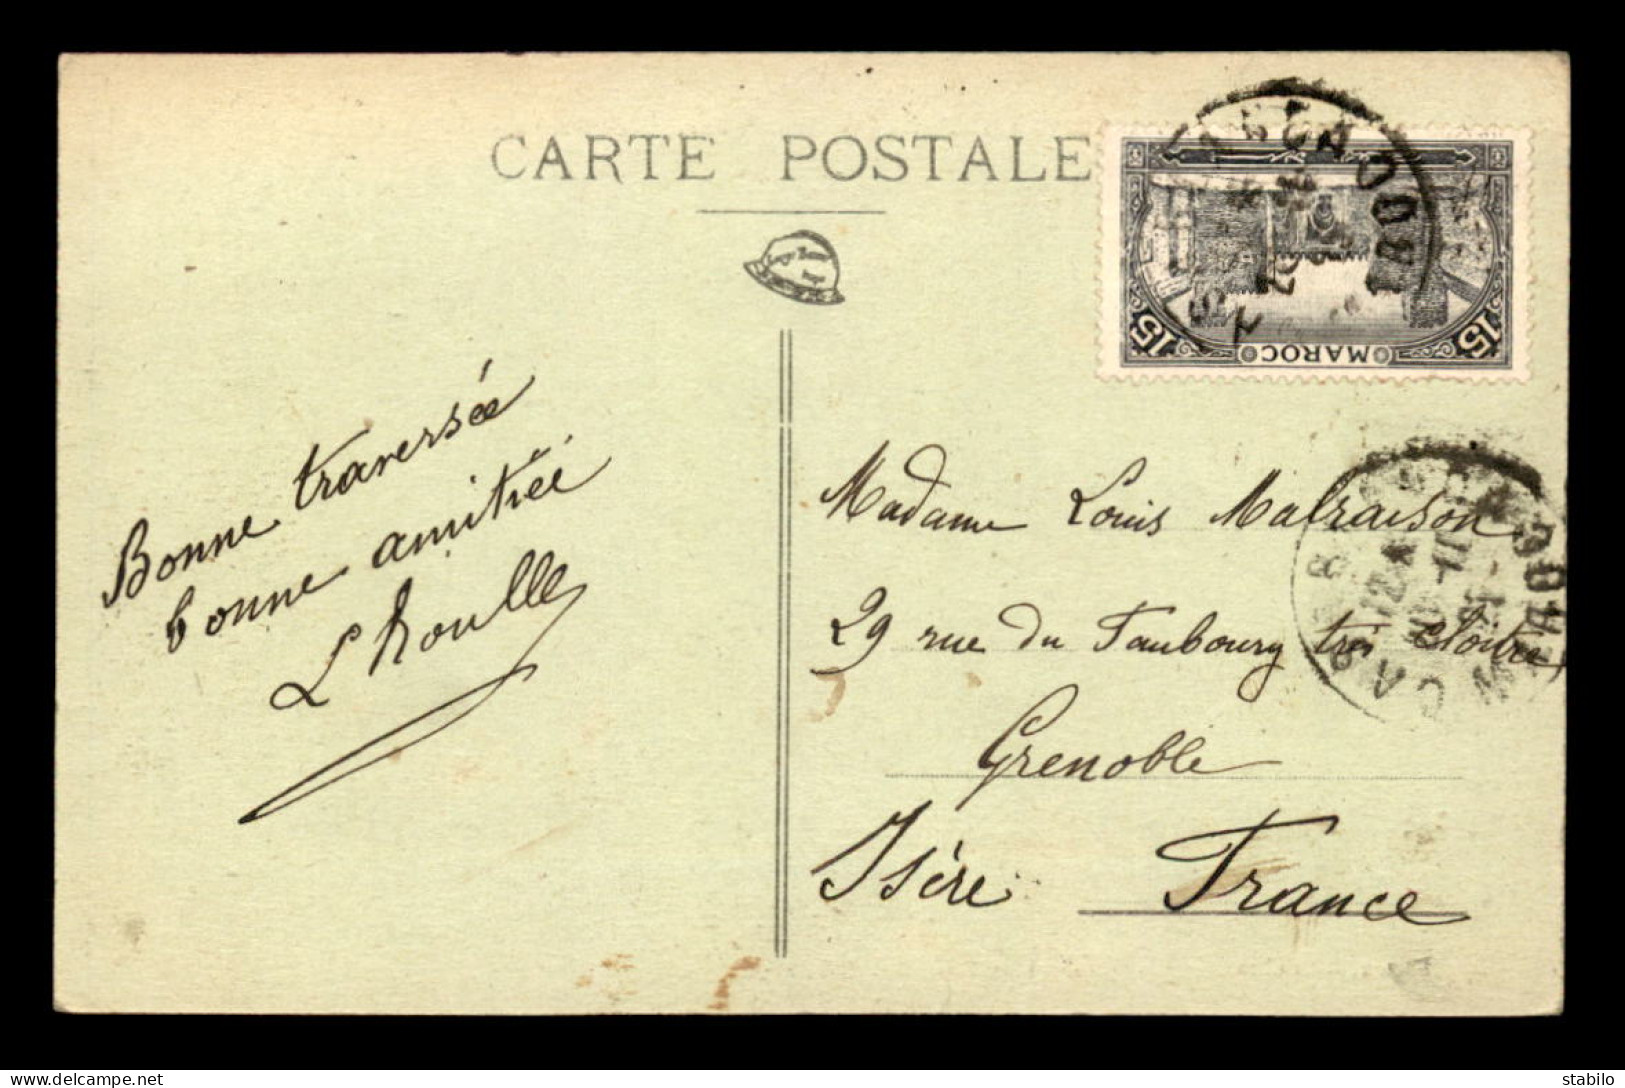 CARTE POSTALE
MAROC
15 15
Bonne traversée
bonne amitiée
Lhoulle
Madame Louis Malraison
29 rue du Faubourg très cloitre
Grenoble
Isère France
stabilo | delcampe.net